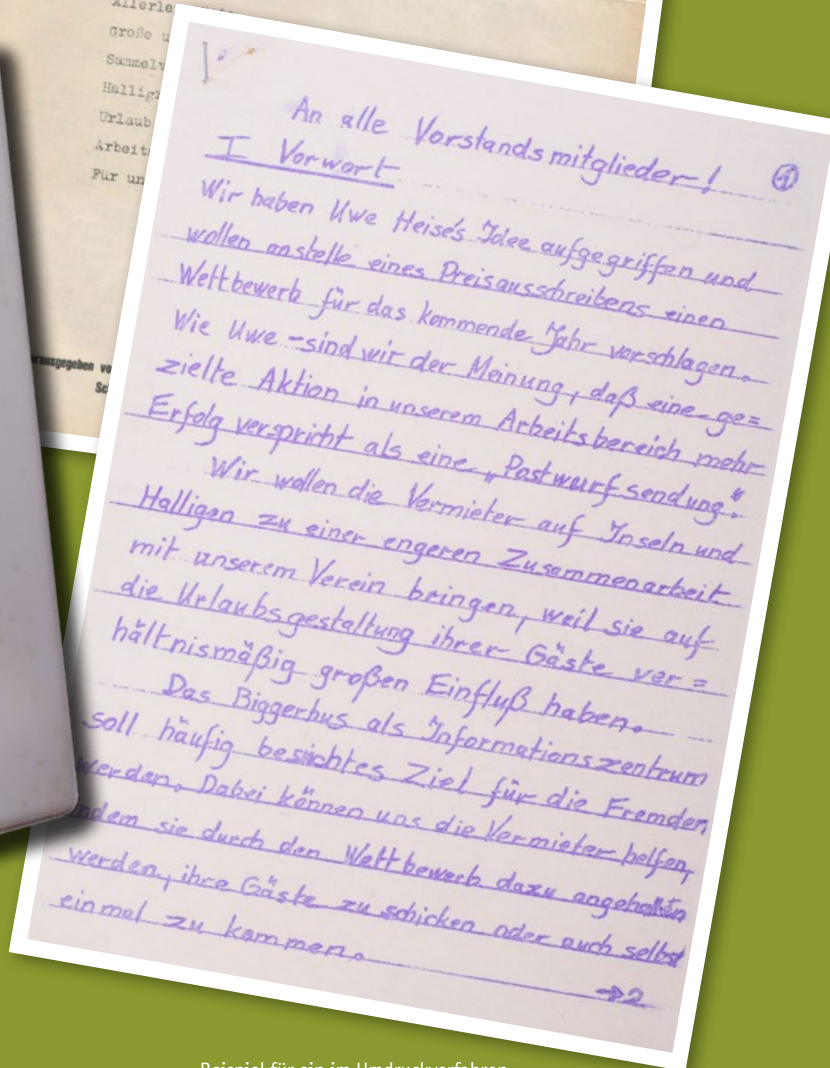 Allerle
Große u
Sammelv
Hallig
Urlaub
Arbeit
Für un
erausgegeben vo
Sc
An alle Vorstandsmitglieder! ①
I Vorwort
Wir haben Uwe Heise's Idee aufgegriffen und
wollen anstelle eines Preisausschreibens einen
Wettbewerb für das kommende Jahr vorschlagen.
Wie Uwe - sind wir der Meinung, daß eine ge=
zielte Aktion in unserem Arbeitsbereich mehr
Erfolg verspricht als eine „Postwurfsendung".
Wir wollen die Vermieter auf Inseln und
Halligen zu einer engeren Zusammenarbeit
mit unserem Verein bringen, weil sie auf
die Urlaubsgestaltung ihrer Gäste ver=
hältnismäßig großen Einfluß haben.
Das Biggerhus als Informationszentrum
soll häufig besichtes Ziel für die Fremden
werden. Dabei können uns die Vermieter helfen,
indem sie durch den Wettbewerb dazu angehalten
werden, ihre Gäste zu schicken oder auch selbst
einmal zu kommen.
→2
Beispiel für ein im Umdruckverfahren